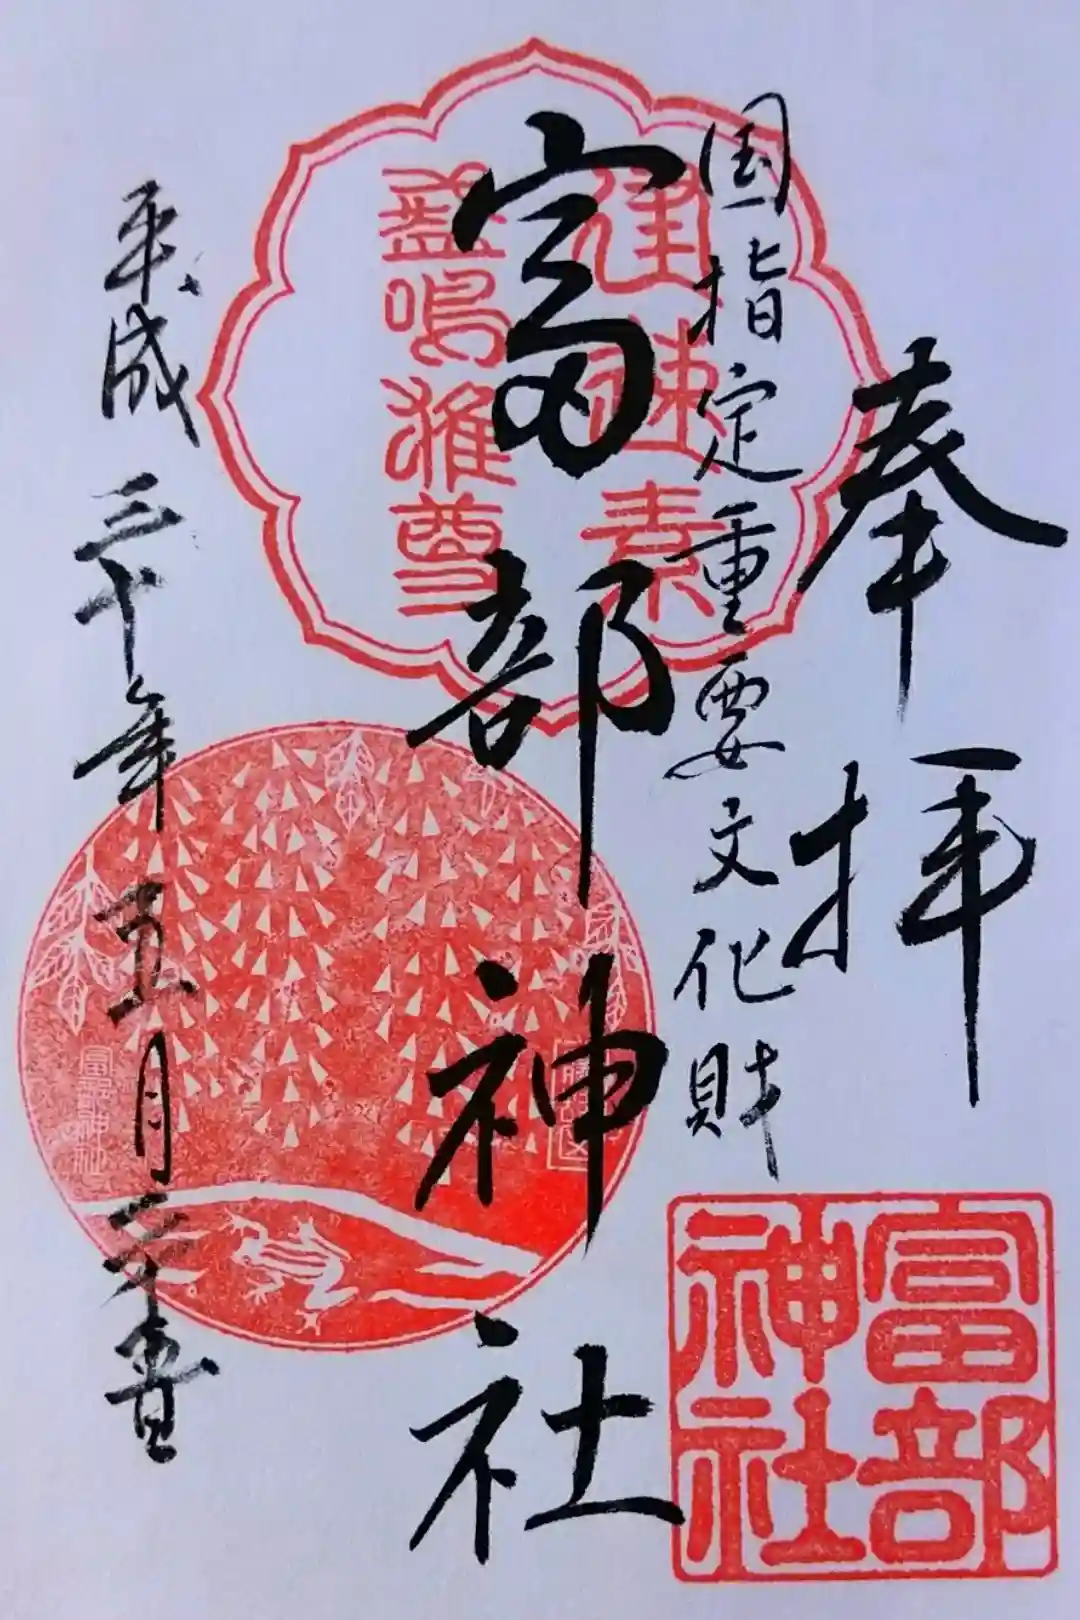 奉拝
国指定重要文化財
富部神社
平成三十年五月二十春日
建速素
盞鳴雅尊
富部
神社
富部神社